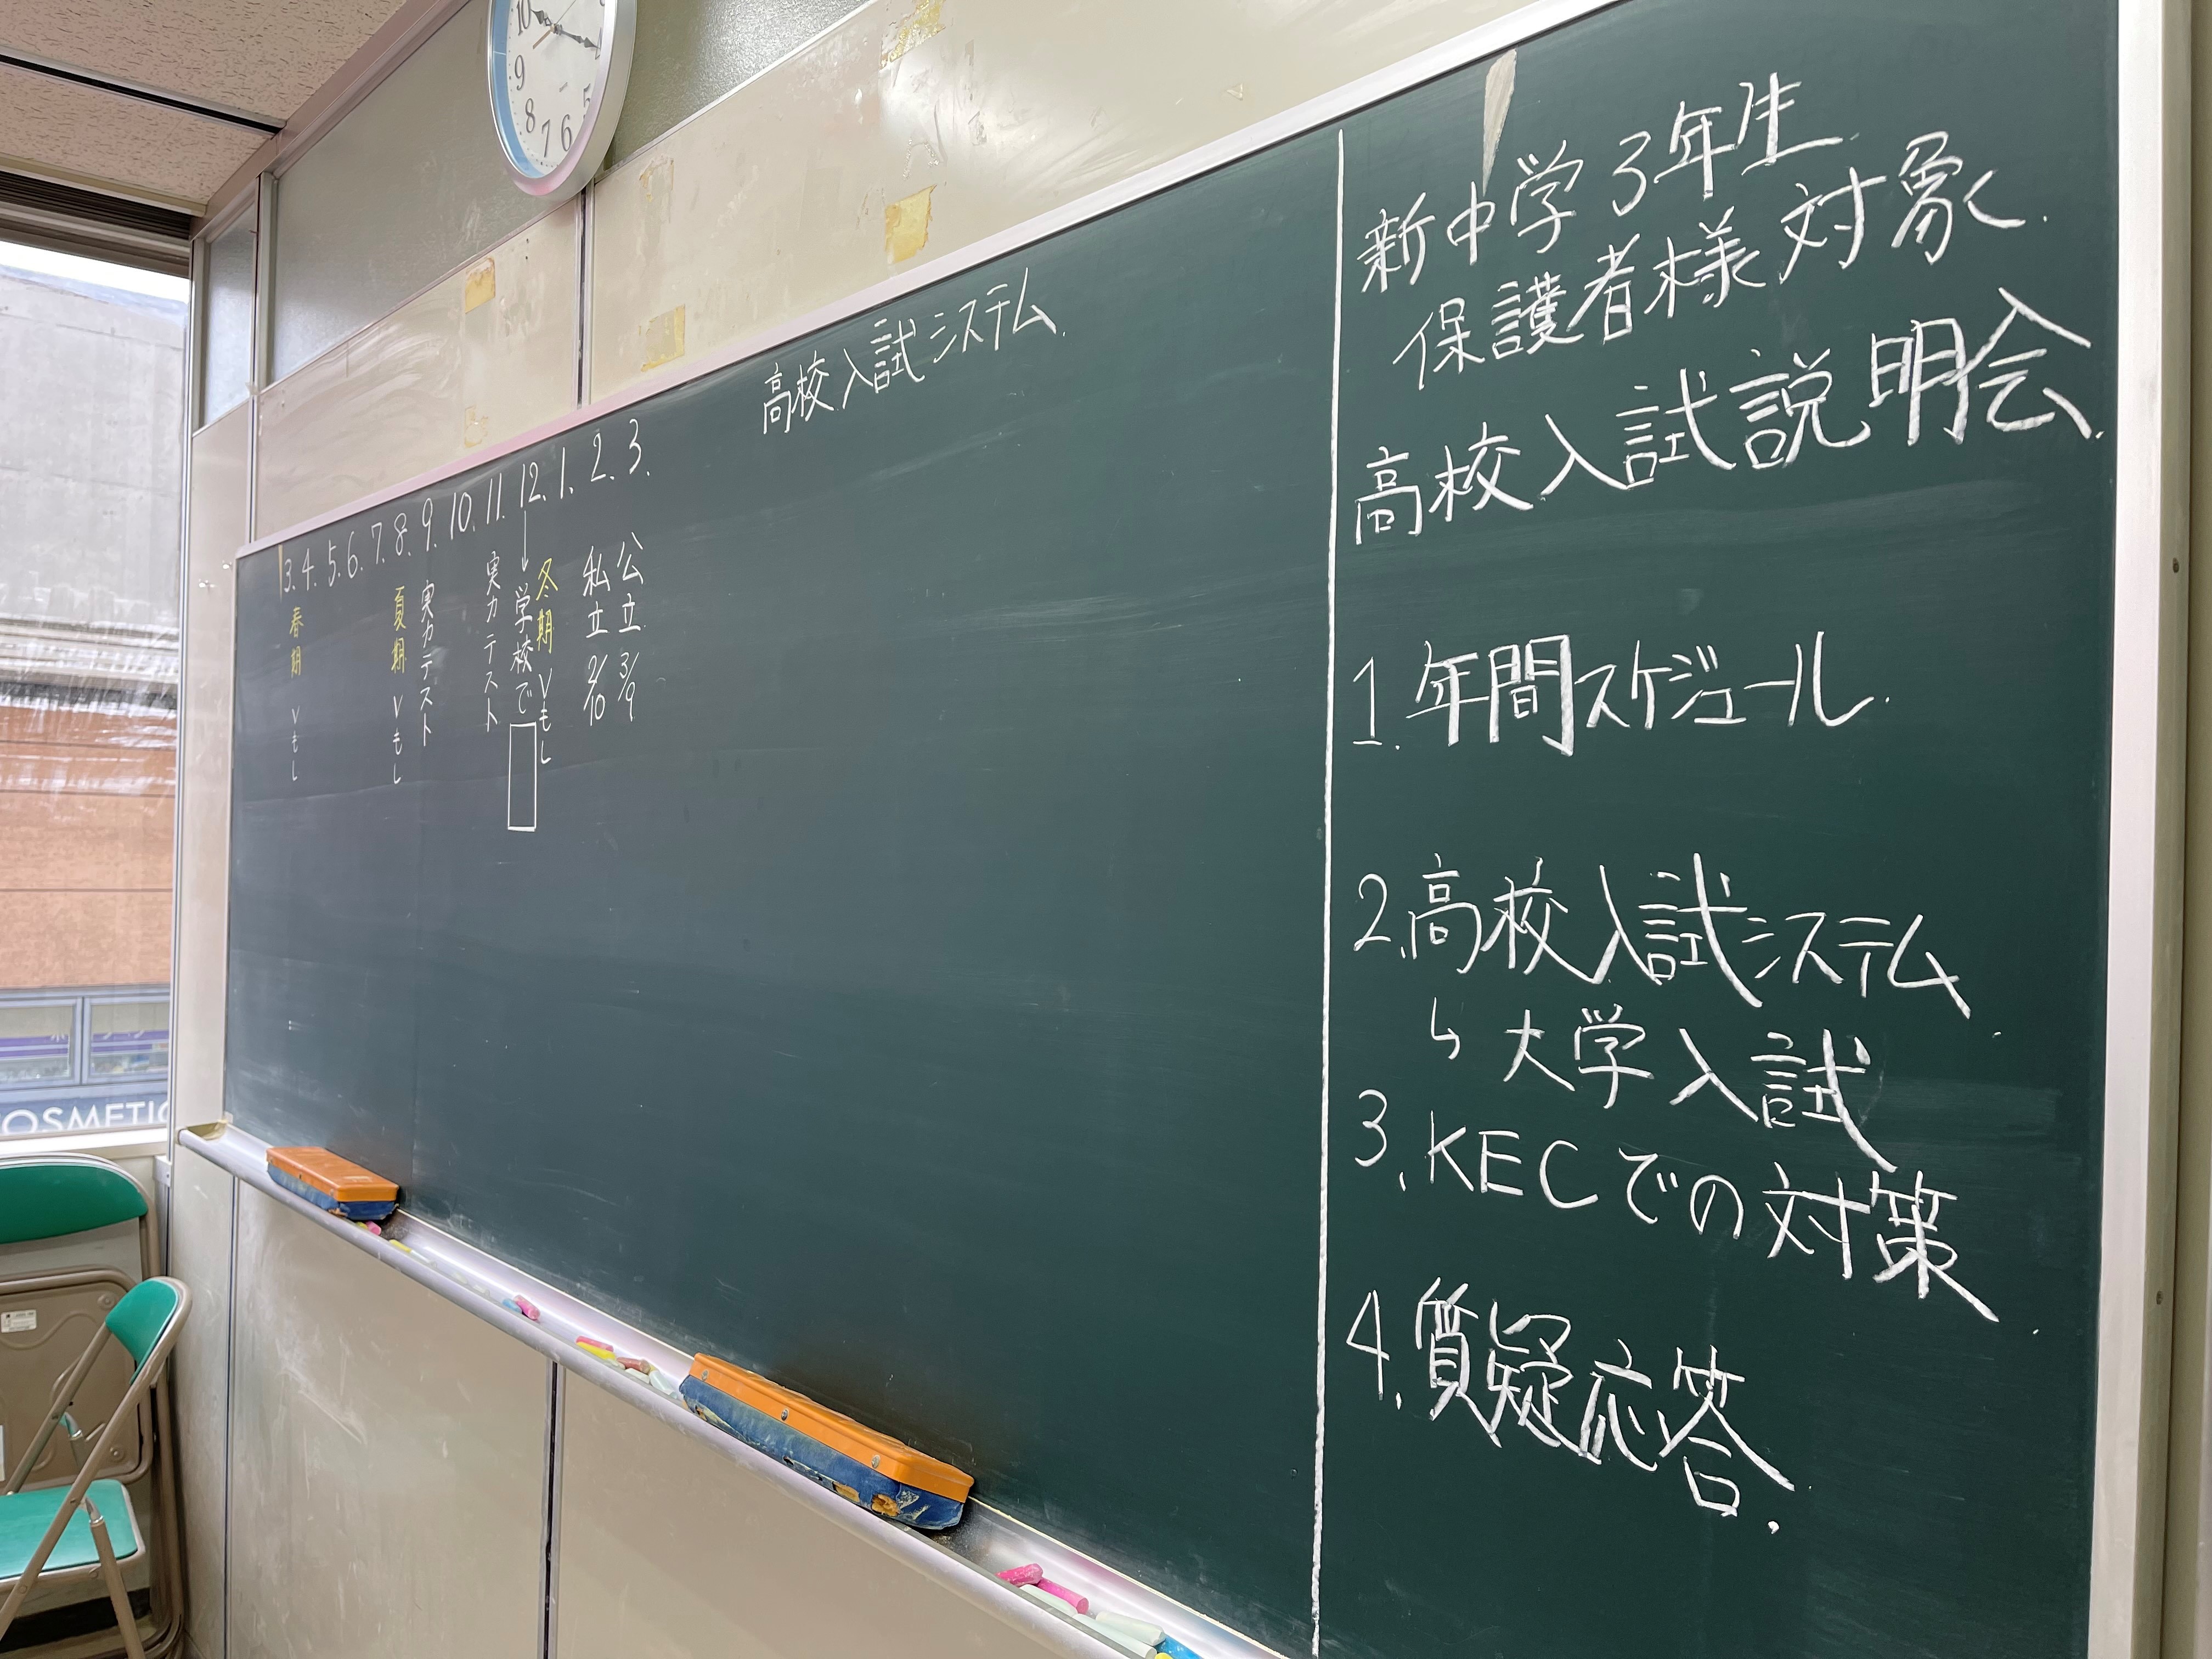 高校入試システム.
3. 4. 5. 6. 7. 8. 9. 10. 11. 12. 1. 2. 3.
春期 Vもし
夏期 Vもし
実力テスト
実力テスト
↓学校で
冬期 Vもし
私立 2/10
公立 3/9
新中学3年生
保護者様対象.
高校入試説明会.
1. 年間スケジュール.
2. 高校入試システム.
↳ 大学入試
3. KECでの対策.
4. 質疑応答.
10
9
8
7
6
5
OSMETIC